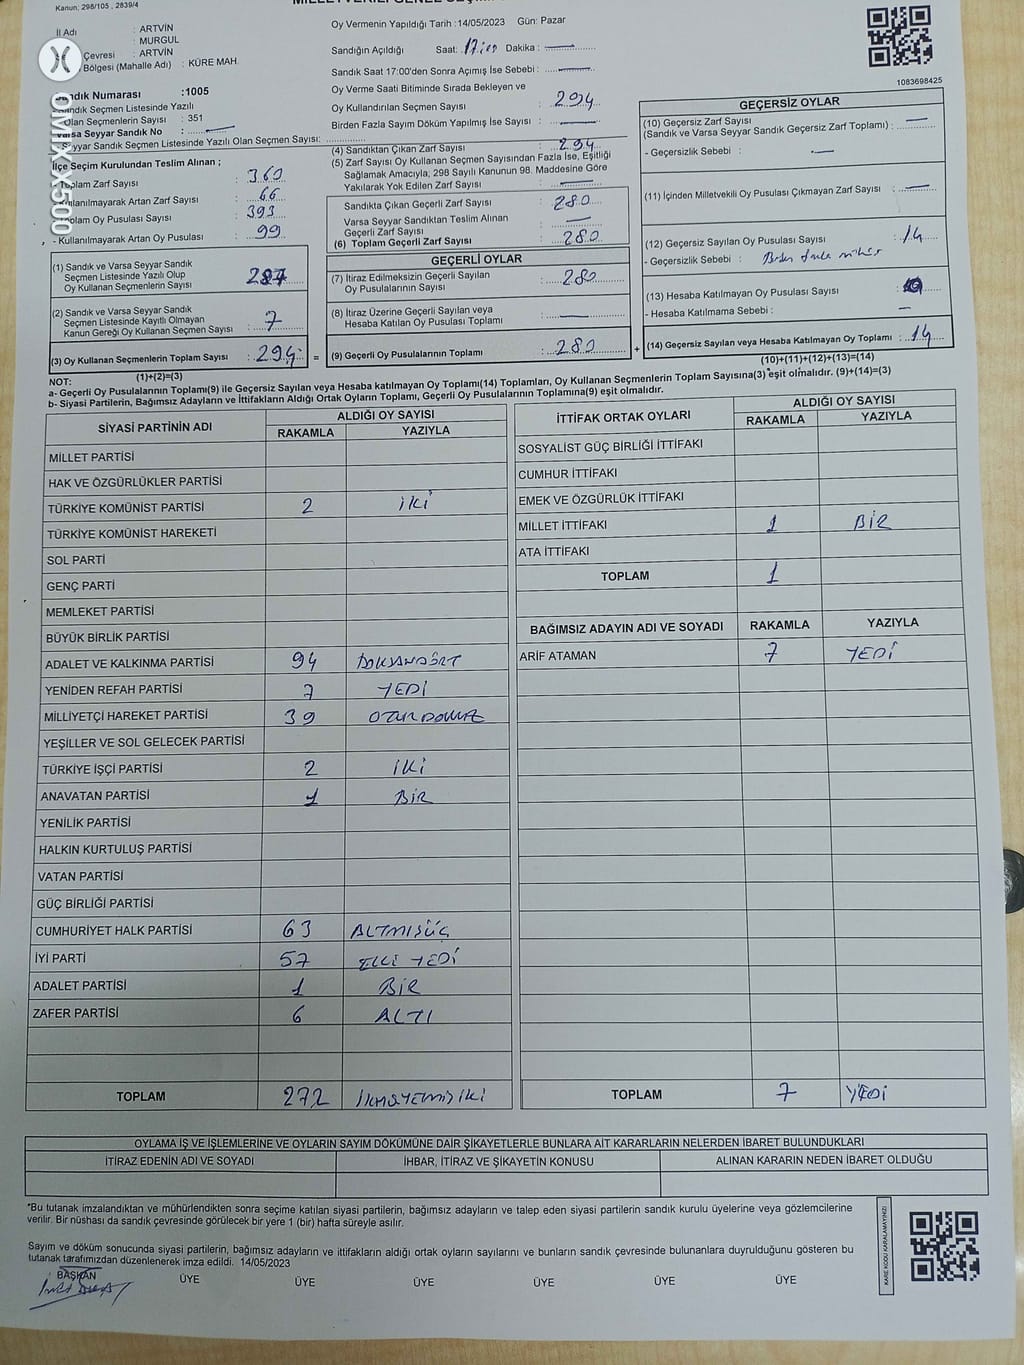 Kanun; 298/105 , 2839/4
İl Adı : ARTVİN
: MURGUL
Çevresi : ARTVİN
Bölgesi (Mahalle Adı) : KÜRE MAH.
Sandık Numarası :1005
Sandık Seçmen Listesinde Yazılı
Olan Seçmenlerin Sayısı : 351
Varsa Seyyar Sandık No :
Seyyar Sandık Seçmen Listesinde Yazılı Olan Seçmen Sayısı:
OMIX X500
Oy Vermenin Yapıldığı Tarih :14/05/2023 Gün: Pazar
Sandığın Açıldığı Saat: 17:00 Dakika :
Sandık Saat 17:00'den Sonra Açımış İse Sebebi :
Oy Verme Saati Bitiminde Sırada Bekleyen ve
Oy Kullandırılan Seçmen Sayısı : 294
Birden Fazla Sayım Döküm Yapılmış İse Sayısı :
1083698425
İlçe Seçim Kurulundan Teslim Alınan ;
Toplam Zarf Sayısı : 360
Kullanılmayarak Artan Zarf Sayısı : 66
Toplam Oy Pusulası Sayısı : 393
- Kullanılmayarak Artan Oy Pusulası : 99
(1) Sandık ve Varsa Seyyar Sandık
Seçmen Listesinde Yazılı Olup
Oy Kullanan Seçmenlerin Sayısı 287
(2) Sandık ve Varsa Seyyar Sandık
Seçmen Listesinde Kayıtlı Olmayan
Kanun Gereği Oy Kullanan Seçmen Sayısı : 7
(3) Oy Kullanan Seçmenlerin Toplam Sayısı : 294 =
(1)+(2)=(3)
(4) Sandıktan Çıkan Zarf Sayısı : 294
(5) Zarf Sayısı Oy Kullanan Seçmen Sayısından Fazla İse, Eşitliği
Sağlamak Amacıyla; 298 Sayılı Kanunun 98. Maddesine Göre
Yakılarak Yok Edilen Zarf Sayısı :
Sandıkta Çıkan Geçerli Zarf Sayısı : 280
Varsa Seyyar Sandıktan Teslim Alınan
Geçerli Zarf Sayısı :
(6) Toplam Geçerli Zarf Sayısı : 280
GEÇERLİ OYLAR
(7) İtiraz Edilmeksizin Geçerli Sayılan
Oy Pusulalarının Sayısı : 280
(8) İtiraz Üzerine Geçerli Sayılan veya
Hesaba Katılan Oy Pusulası Toplamı :
(9) Geçerli Oy Pusulalarının Toplamı : 280 +
GEÇERSİZ OYLAR
(10) Geçersiz Zarf Sayısı
(Sandık ve Varsa Seyyar Sandık Geçersiz Zarf Toplamı) :
- Geçersizlik Sebebi :
(11) İçinden Milletvekili Oy Pusulası Çıkmayan Zarf Sayısı :
(12) Geçersiz Sayılan Oy Pusulası Sayısı : 14
- Geçersizlik Sebebi : Birden fazla mühür
(13) Hesaba Katılmayan Oy Pusulası Sayısı :
- Hesaba Katılmama Sebebi :
(14) Geçersiz Sayılan veya Hesaba Katılmayan Oy Toplamı : 14
(10)+(11)+(12)+(13)=(14)
NOT:
a- Geçerli Oy Pusulalarının Toplamı(9) ile Geçersiz Sayılan veya Hesaba katılmayan Oy Toplamı(14) Toplamları, Oy Kullanan Seçmenlerin Toplam Sayısına(3) eşit olmalıdır. (9)+(14)=(3)
b- Siyasi Partilerin, Bağımsız Adayların ve İttifakların Aldığı Ortak Oyların Toplamı, Geçerli Oy Pusulalarının Toplamına(9) eşit olmalıdır.
SİYASİ PARTİNİN ADI ALDIĞI OY SAYISI
RAKAMLA YAZIYLA
MİLLET PARTİSİ
HAK VE ÖZGÜRLÜKLER PARTİSİ
TÜRKİYE KOMÜNİST PARTİSİ 2 İKİ
TÜRKİYE KOMÜNİST HAREKETİ
SOL PARTİ
GENÇ PARTİ
MEMLEKET PARTİSİ
BÜYÜK BİRLİK PARTİSİ
ADALET VE KALKINMA PARTİSİ 94 DOKSANDÖRT
YENİDEN REFAH PARTİSİ 7 YEDİ
MİLLİYETÇİ HAREKET PARTİSİ 39 OTUZDOKUZ
YEŞİLLER VE SOL GELECEK PARTİSİ
TÜRKİYE İŞÇİ PARTİSİ 2 İKİ
ANAVATAN PARTİSİ 1 BİR
YENİLİK PARTİSİ
HALKIN KURTULUŞ PARTİSİ
VATAN PARTİSİ
GÜÇ BİRLİĞİ PARTİSİ
CUMHURİYET HALK PARTİSİ 63 ALTMIŞÜÇ
İYİ PARTİ 57 ELLİ YEDİ
ADALET PARTİSİ 1 BİR
ZAFER PARTİSİ 6 ALTI
TOPLAM 272 İKİYÜZYETMİŞİKİ
İTTİFAK ORTAK OYLARI ALDIĞI OY SAYISI
RAKAMLA YAZIYLA
SOSYALİST GÜÇ BİRLİĞİ İTTİFAKI
CUMHUR İTTİFAKI
EMEK VE ÖZGÜRLÜK İTTİFAKI
MİLLET İTTİFAKI 1 BİR
ATA İTTİFAKI
TOPLAM 1
BAĞIMSIZ ADAYIN ADI VE SOYADI RAKAMLA YAZIYLA
ARİF ATAMAN 7 YEDİ
TOPLAM 7 YEDİ
OYLAMA İŞ VE İŞLEMLERİNE VE OYLARIN SAYIM DÖKÜMÜNE DAİR ŞİKAYETLERLE BUNLARA AİT KARARLARIN NELERDEN İBARET BULUNDUKLARI
İTİRAZ EDENİN ADI VE SOYADI İHBAR, İTİRAZ VE ŞİKAYETİN KONUSU ALINAN KARARIN NEDEN İBARET OLDUĞU
"Bu tutanak imzalandıktan ve mühürlendikten sonra seçime katılan siyasi partilerin, bağımsız adayların ve talep eden siyasi partilerin sandık kurulu üyelerine veya gözlemcilerine
verilir. Bir nüshası da sandık çevresinde görülecek bir yere 1 (bir) hafta süreyle asılır.
Sayım ve döküm sonucunda siyasi partilerin, bağımsız adayların ve ittifakların aldığı ortak oyların sayılarını ve bunların sandık çevresinde bulunanlara duyrulduğunu gösteren bu
tutanak tarafımızdan düzenlenerek imza edildi. 14/05/2023
BAŞKAN ÜYE ÜYE ÜYE ÜYE ÜYE ÜYE
KARE KODU KARALAMAYINIZ!